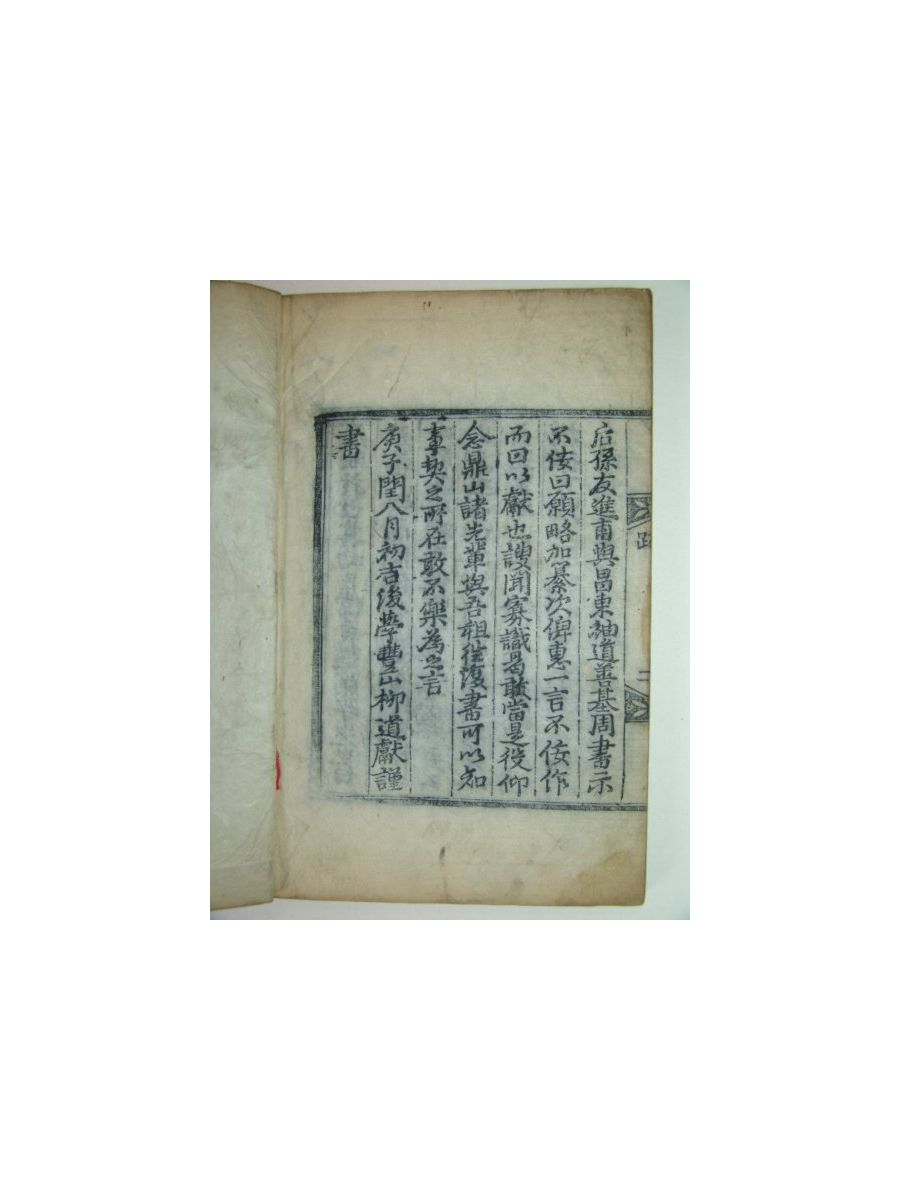 后孫友進甫與昌東袖道善基周書示
不佞曰願略加纂次俾惠一言不佞作
而曰以獻也謏聞寡識曷敢當是役仰
念鼎山諸先輩與吾祖往復書可以知
事契之所在敢不樂為之言
庚子閏八月初吉後學豐山柳道獻謹
書
跋
二